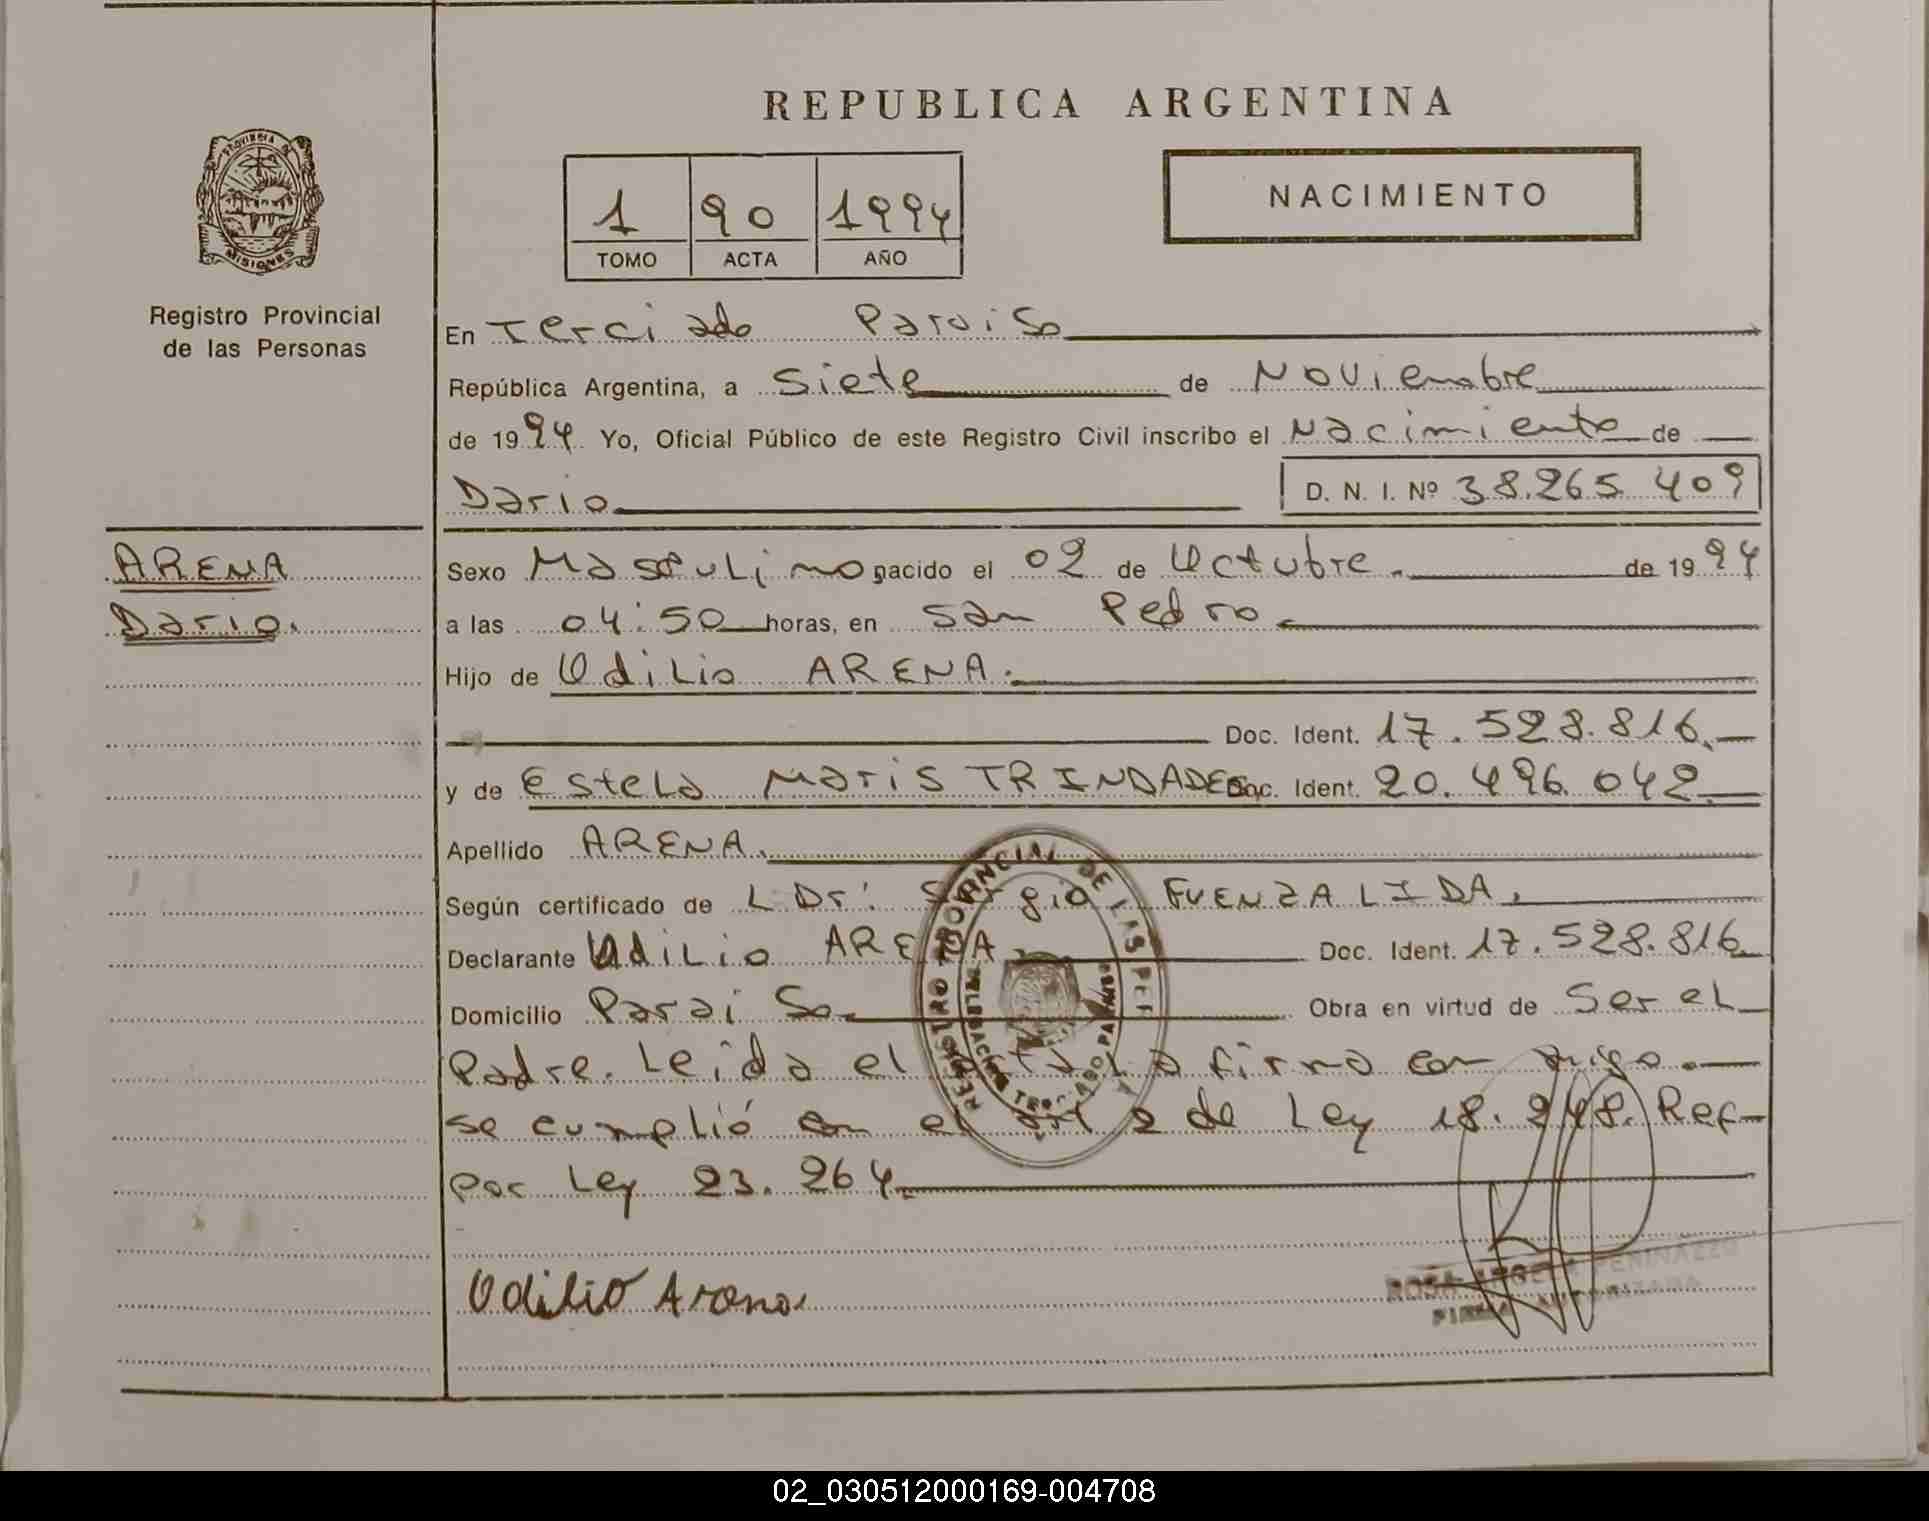 REPUBLICA ARGENTINA
PROVINCIA DE
MISIONES
Registro Provincial
de las Personas
1 90 1994
TOMO ACTA AÑO
NACIMIENTO
En Terciado Paraiso
República Argentina, a Siete de Noviembre
de 1994 Yo, Oficial Público de este Registro Civil inscribo el Nacimiento de
Dario D. N. I. Nº 38.265 409
ARENA
Dario.
Sexo Masculino nacido el 02 de Octubre. de 1994
a las 04:50 horas, en San Pedro
Hijo de Odilio ARENA.
Doc. Ident. 17.528.816.
y de Estela Maris TRINDADE Doc. Ident. 20.496.042
Apellido ARENA.
Según certificado de L Dr: Sergio FUENZALIDA.
Declarante Odilio ARENA Doc. Ident. 17.528.816
Domicilio Paraiso Obra en virtud de Ser el
Padre. Leida el acta La firma con migo.
se cumplió con el art 2 de Ley 18.248. Ref
por Ley 23.264.
REGISTRO PROVINCIAL DE LAS PER
DELEGACION TERCIADO PARAISO
Odilio Arena
ROSA PENINAZZO
FIRMA AUTORIZADA
02_030512000169-004708